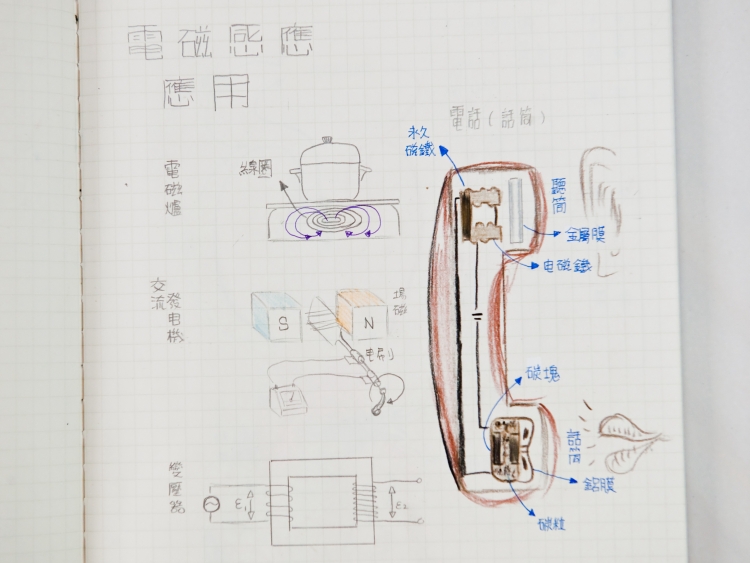 電磁感應
應用
電磁爐
線圈
交流
發电機
S
N
電話(話筒)
永久
磁鐵
聽筒
金屬膜
电磁鐵
碳塊
話筒
鋁膜
碳粒
變壓器
ε1
ε2